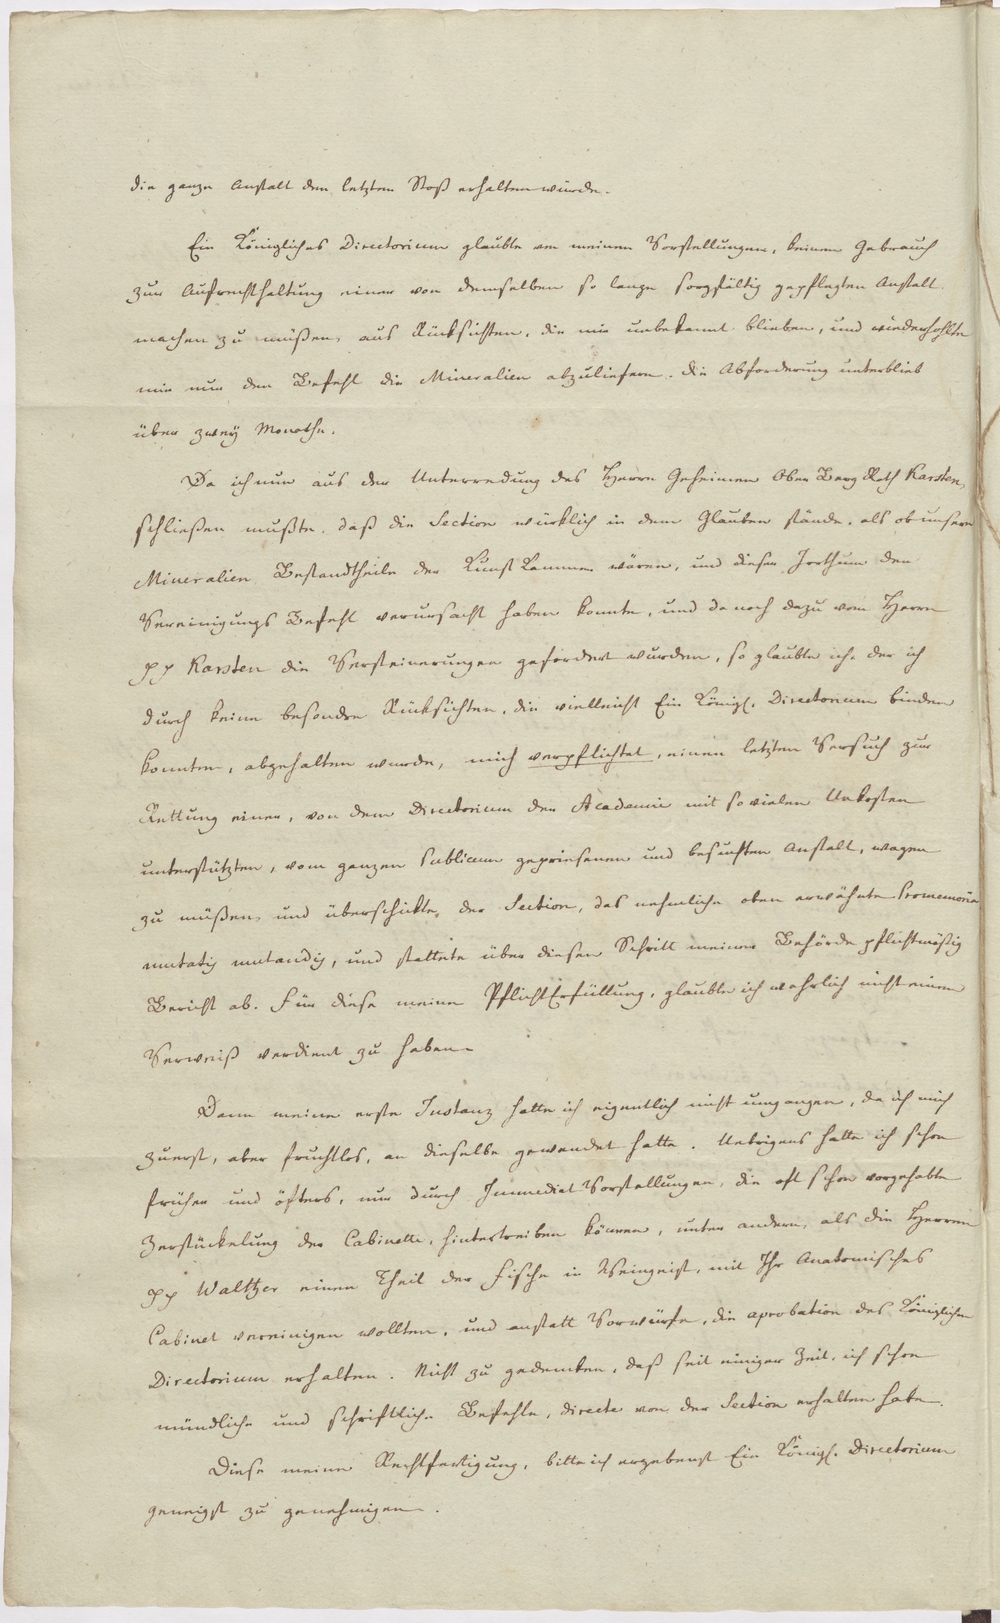 die ganze Anstalt den letzten Stoß erhalten würde.
Ein Königliches Directorium glaubte von meinen Vorstellungen, keinen Gebrauch
zur Aufrechthaltung einer von demselben so lange sorgfältig gepflegten Anstalt
machen zu müßen, aus Rücksichten, die mir unbekannt blieben, und wiederhohlte
mir nur den Befehl die Mineralien abzuliefern. Die Abforderung unterblieb
über zwey Monathe.
Da ich nun aus der Unterredung des Herrn Geheimen Ober Berg Rath Karsten,
schließen mußte, daß die Section würklich in dem Glauben stände, als ob unsere
Mineralien Bestandtheile der Kunst Kammer wären, und dieser Irrthum den
Vereinigungs Befehl verursacht haben konnte, und da noch dazu vom Herrn
pp Karsten die Versteinerungen gefordert wurden, so glaubte ich, der ich
durch keine besondre Rücksichten, die vielleicht Ein Königl. Directorium binden
konnten, abgehalten wurde, mich verpflichtet, einen letzten Versuch zur
Rettung einer, von dem Directorium der Academie mit so vielen Unkosten
unterstützten, vom ganzen Publicum gepriesenen und besuchten Anstalt, wagen
zu müßen, und überschickte, der Section, das nehmliche oben erwähnte Promemoria
mutatis mutandis, und stattete über diesen Schritt meiner Behörde pflichtmäßig
Bericht ab. Für diese meine PflichtErfüllung, glaubte ich wahrlich nicht einen
Verweiß verdient zu haben.
Denn meine erste Instanz hatte ich eigentlich nicht umgangen, da ich mich
zuerst, aber fruchtlos, an dieselbe gewendet hatte. Uebrigens hatte ich schon
früher und öfters, nur durch Immediat Vorstellungen, die oft schon vorgehabte
Zerstückelung der Cabinette, hintertreiben können, unter andern, als die Herren
pp Waltzer einen Theil der Fische in Weingeist, mit Ihr Anatomisches
Cabinet vereinigen wollten, und anstatt Vorwürfe, die aprobation des Königlichen
Directorium erhalten. Nicht zu gedenken, daß seit einiger Zeit, ich schon
mündliche und schriftliche Befehle, directe von der Section erhalten habe.
Diese meine Rechtfertigung, bitte ich ergebenst Ein Königl. Directorium
geneigst zu genehmigen.